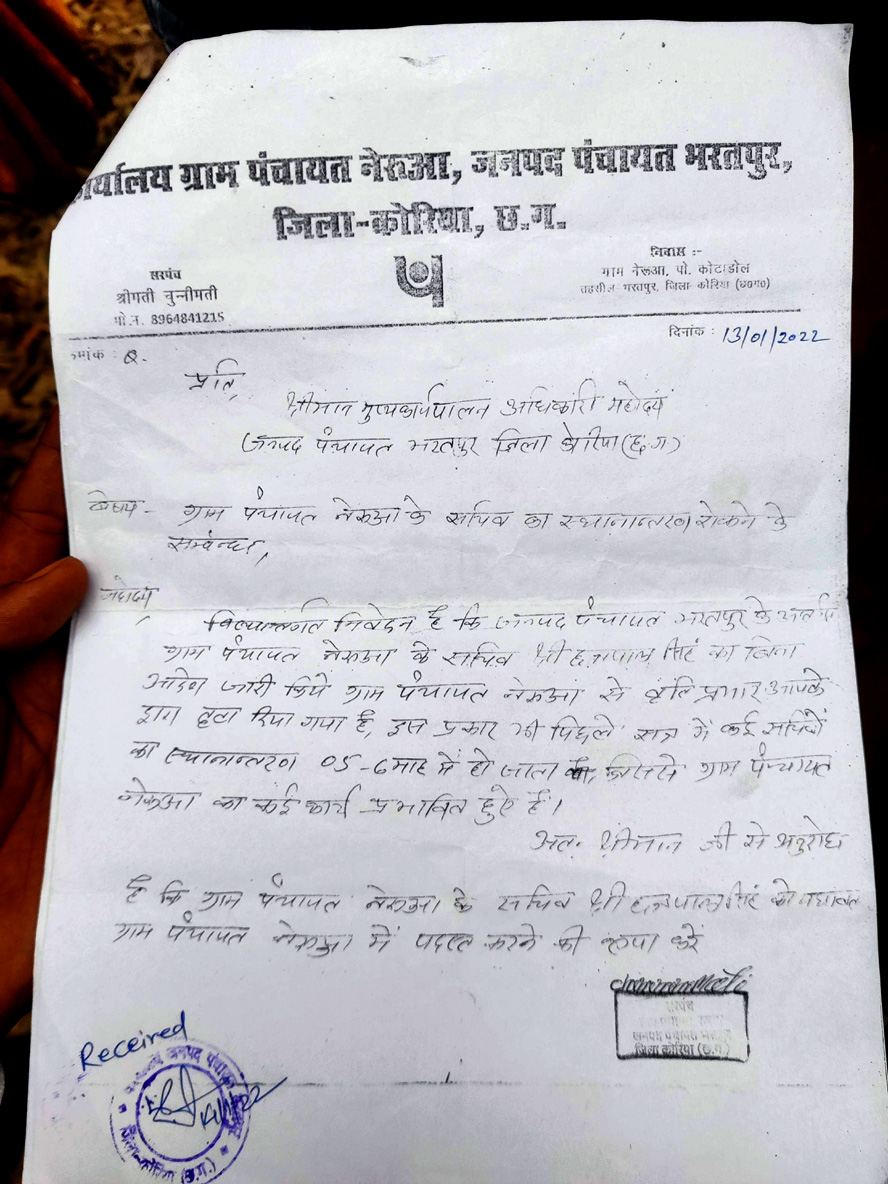 कार्यालय ग्राम पंचायत नेरूआ, जनपद पंचायत भरतपुर,
जिला-कोरिया, छ.ग.
सरपंच
श्रीमती चुन्नीमती
मो.न. 8964841215
निवास :-
ग्राम नेरूआ, पो. कोटाडोल
तहसील भरतपुर, जिला कोरिया (छ०ग०)
क्रमांक : Q.
दिनांक : 13/01/2022
प्रति,
श्रीमान मुख्यकार्यपालन अधिकारी महोदय
जनपद पंचायत भरतपुर जिला कोरिया (छ.ग)
विषय - ग्राम पंचायत नेरूआ के सचिव का स्थानान्तरण रोकने के
सम्बन्ध,
महोदय,
विषयान्तर्गत निवेदन है कि जनपद पंचायत भरतपुर के अंतर्गत
ग्राम पंचायत नेरूआ के सचिव श्री सिंह का बिना
आदेश जारी किये ग्राम पंचायत नेरूआ से आपके
द्वारा हटा दिया गया है, इस प्रकार भी पिछले सत्र में कई सचिवों
का स्थानान्तरण 05-6 माह में हो जाता जिससे ग्राम पंचायत
नेरूआ का कई कार्य प्रभावित हुऐ हैं।
अतः श्रीमान जी से अनुरोध
है कि ग्राम पंचायत नेरूआ के सचिव श्री सिंह को यथावत
ग्राम पंचायत नेरूआ में पदस्त करने की कृपा करें
सरपंच
जनपद पंचायत
जिला कोरिया (छ.ग.)
Received
जनपद पंचायत
जिला-कोरिया (छ.ग.)